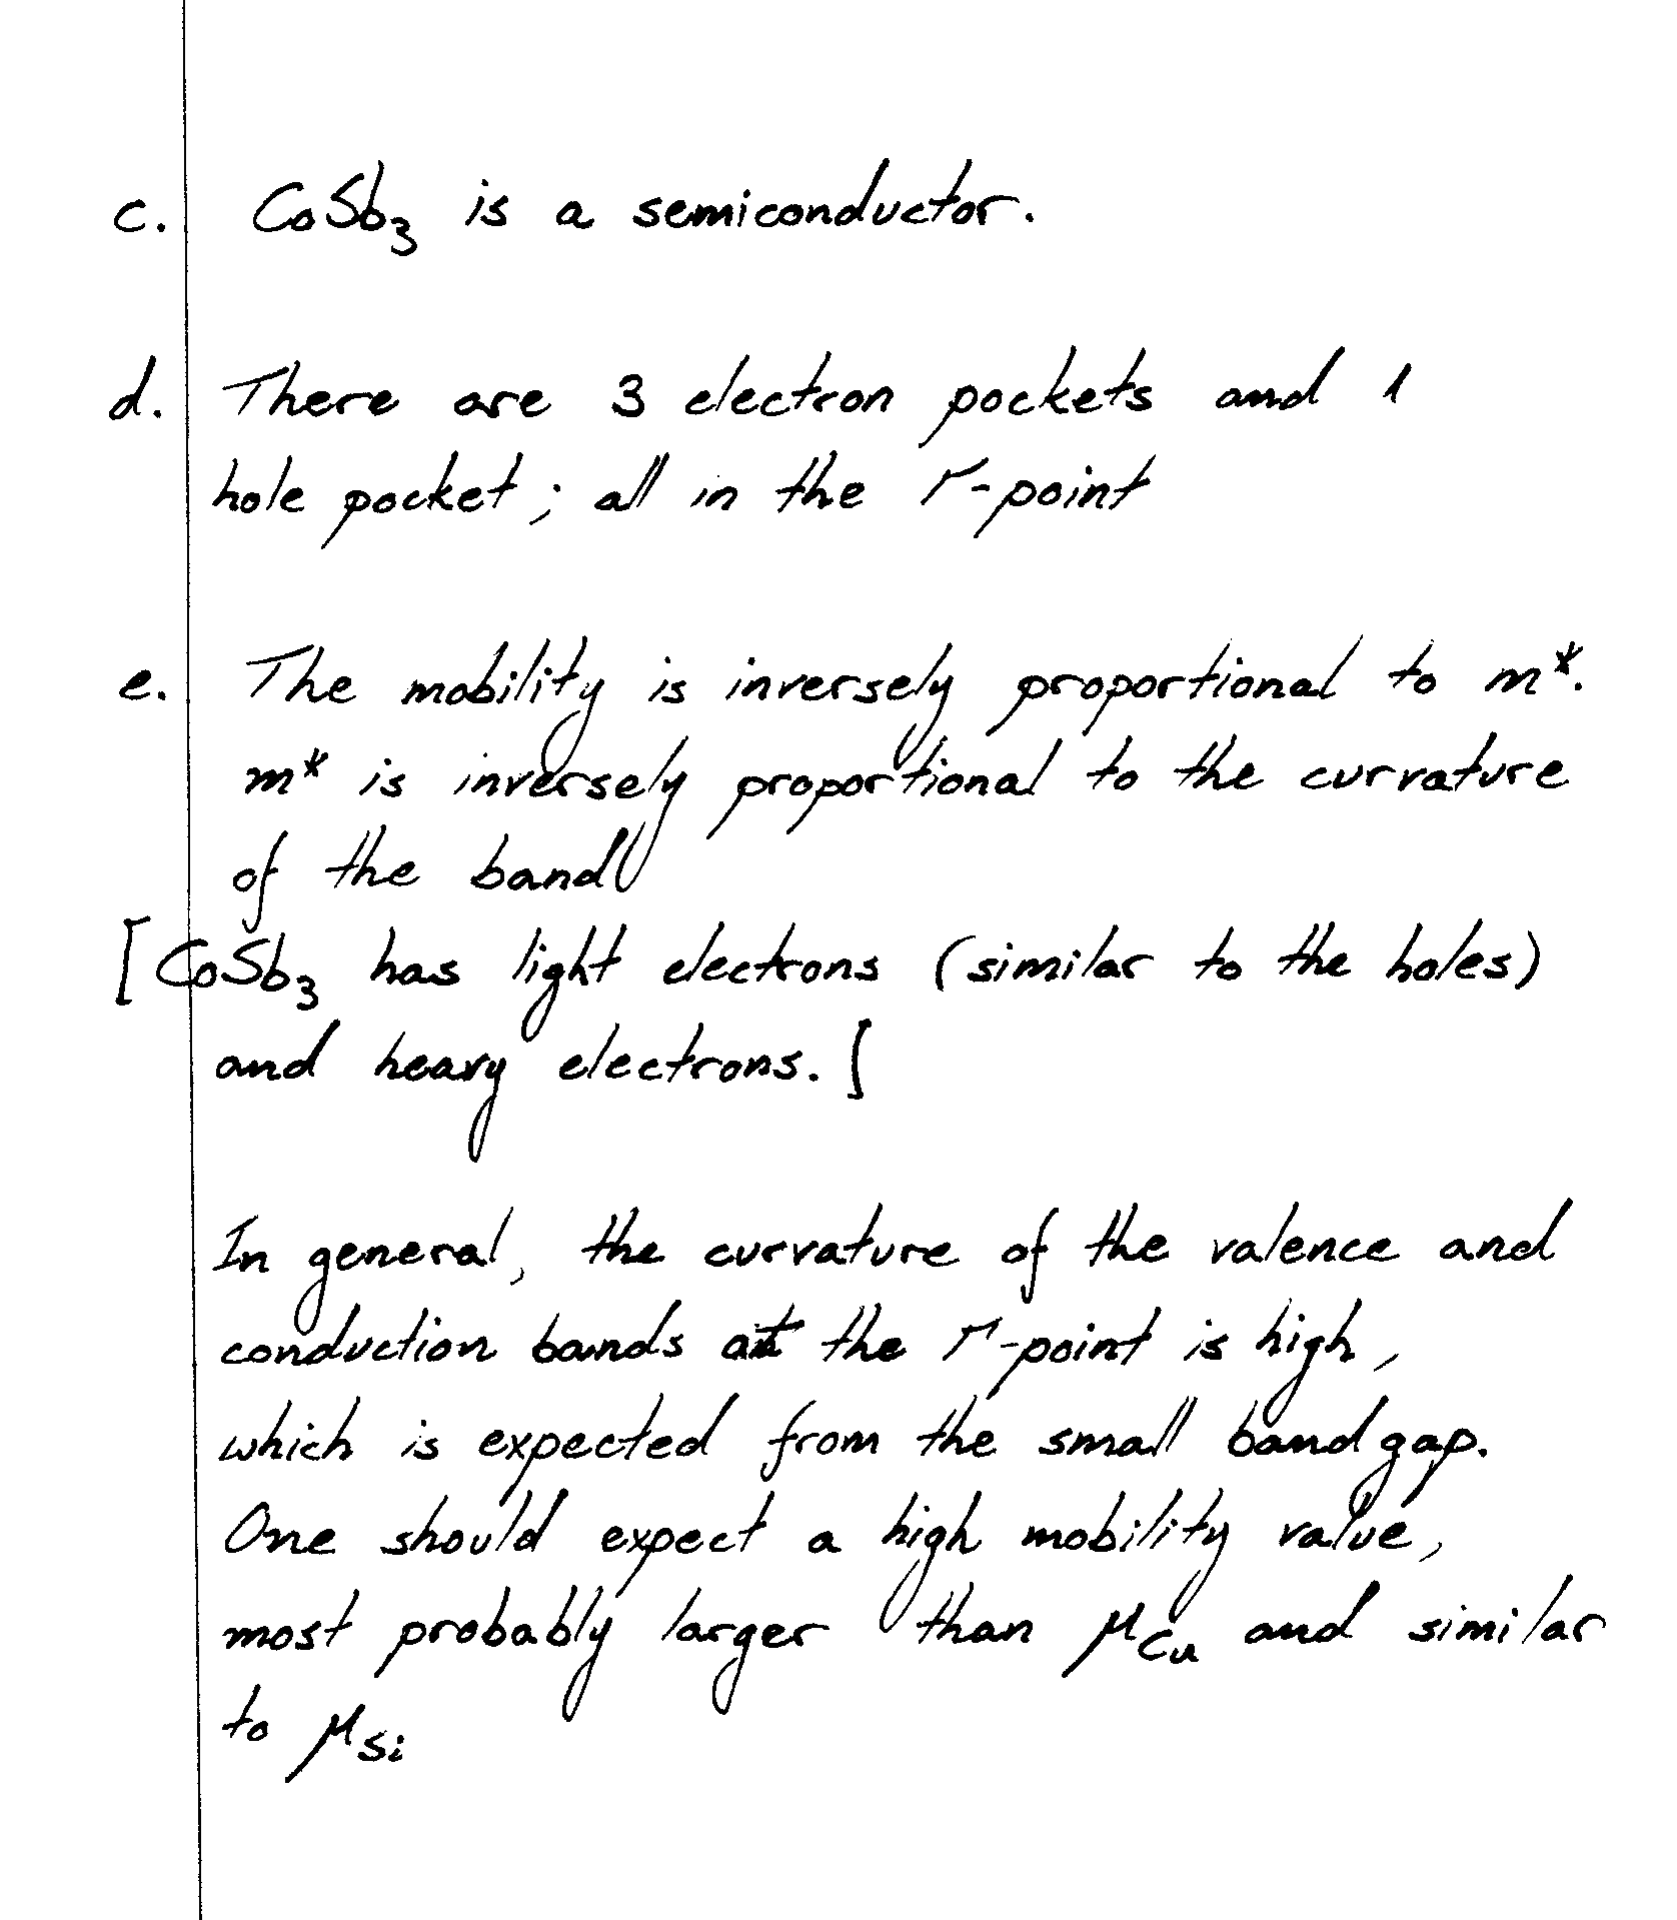 c. CoSb₃ is a semiconductor.
d. There are 3 electron pockets and 1
hole pocket; all in the Γ-point
e. The mobility is inversely proportional to m*.
m* is inversely proportional to the curvature
of the band
[CoSb₃ has light electrons (similar to the holes)
and heavy electrons. [
In general, the curvature of the valence and
conduction bands at the Γ-point is high,
which is expected from the small band gap.
One should expect a high mobility value,
most probably larger than μCu and similar
to μSi